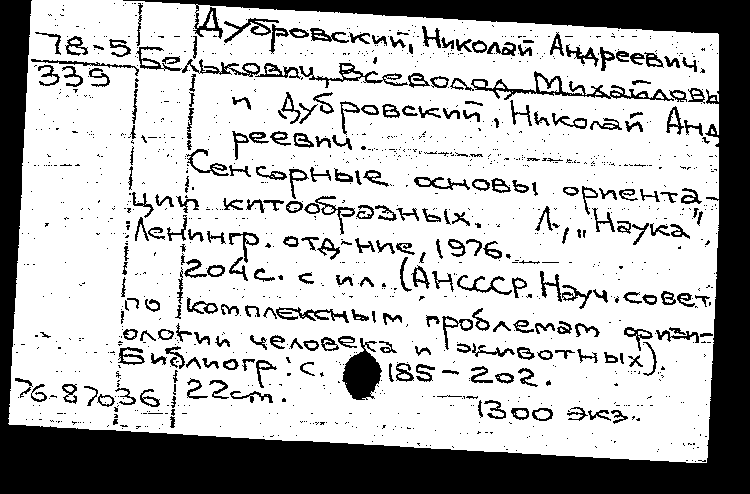 Дубровский, Николай Андреевич.
78-5
339
Белькович, Всеволод Михайлови
и Дубровский, Николай Анд
реевич.
Сенсорные основы ориента-
ции китообразных. Л., „Наука",
Ленингр. отд-ние, 1976.
204с. с ил. (АНСССР. Науч. совет
по комплексным проблемам физи-
ологии человека и животных).
Библиогр: с. 185-202.
76-87036 22см.
1300 экз.